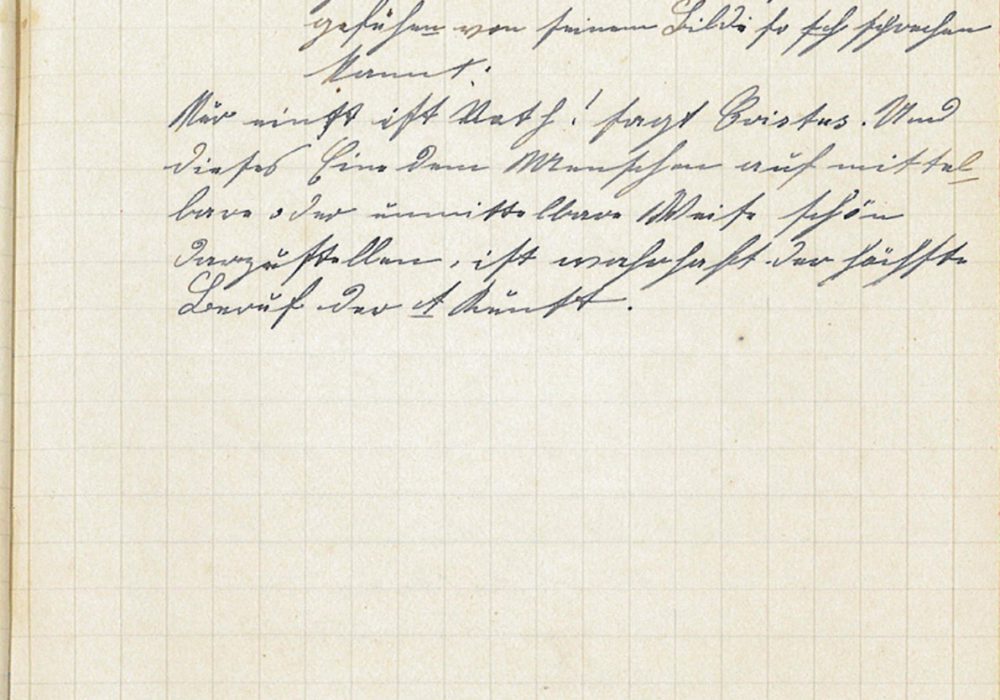 gesehen von seinem Bilde so sch sprechen
kannt.
Nur einst ist Noth! sagt Cristus. Und
dieses Eine dem Menschen auf mittel-
bare oder unmittelbare Weise schön
darzustellen, ist wahrhaft der höchste
Beruf der A Kunst.